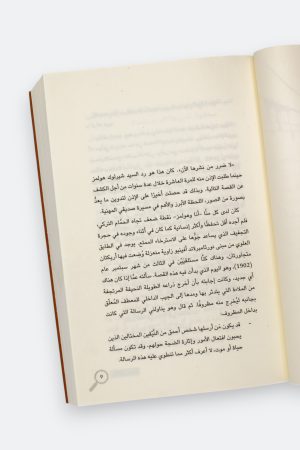 «لا ضرر من نشرها الآن». كان هذا هو رد السيد شيرلوك هولمز
حينما طلبت الإذن منه للمرة العاشرة خلال عدة سنوات من أجل الكشف
عن القصة التالية. وبذلك قد حصلت أخيرًا على الإذن لتدوين ما يعدُّ
بصورة من الصور، اللحظة الأبرز والأهم في مسيرة صديقي المهنية.
كان لدى كل منَّا -أنا وهولمز- نقطة ضعف تجاه الحمَّام التركي،
فلم أجده أقل تحفظًا وأكثر إنسانية كما كان في أثناء وجوده في حجرة
التجفيف الذي يساعد جوُّها على الاسترخاء الممتع. يوجد في الطابق
العلوي من مبنى نورثامبرلاند أفينيو زاوية منعزلة وُضعت فيها أريكتان
متجاورتان، وهناك كنَّا مستلقيَيْن في الثالث من شهر سبتمبر عام
(1902)، وهو اليوم الذي بدأت فيه هذه القصة. سألته عمَّا إذا كان هناك
أي جديد، وكانت إجابته بأن أخرج ذراعه الطويلة النحيفة المرتجفة
من الملاءة التي يتدثر بها ومدها إلى الجيب الداخلي للمعطف المُعلَّق
بجانبه ليُخرج منه مظروفًا. ثم قال وهو يناولني الرسالة التي كانت
بداخل المظروف:
- قد يكون مَن أرسلها شخص أحمق من النَّزِقين المختالين الذين
يحبون افتعال الأمور وإثارة الضجة حولهم، وقد تكون مسألة
حياة أو موت، لا أعرف أكثر مما تنطوي عليه هذه الرسالة.